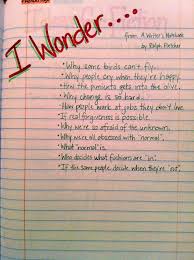 I Wonder....
from A Writer's Notebook
by Ralph Fletcher
•Why some birds can't fly.
•Why people cry when they're happy.
•How the pimiento gets into the olive.
•Why change is so hard.
•How people work at jobs they don't love.
•If real forgiveness is possible.
•Why we're so afraid of the unknown.
•Why we're all obsessed with "normal".
•What "normal" is.
•Who decides what fashions are "in".
•If the same people decide when they're "out".